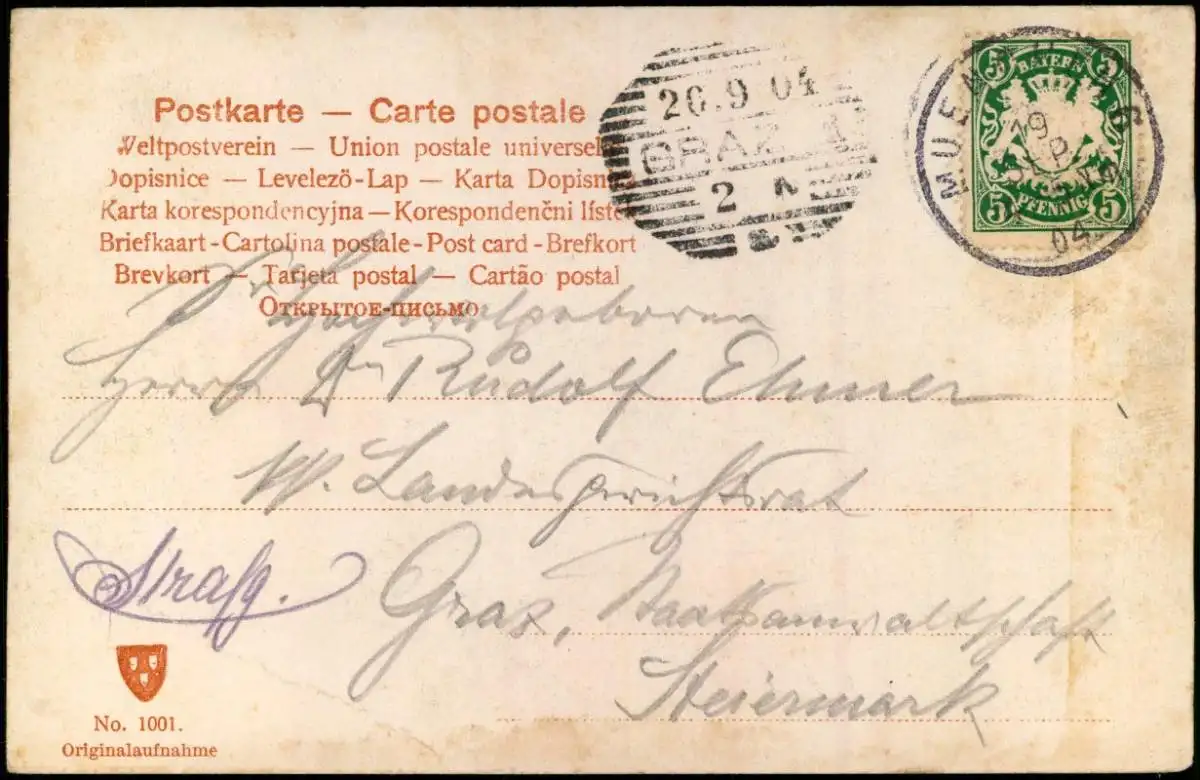 Postkarte — Carte postale
Weltpostverein — Union postale universel
Dopisnice — Levelező-Lap — Karta Dopisn
Karta korespondencyjna — Korespondenčni líste
Briefkaart - Cartolina postale - Post card - Brefkort
Brevkort — Tarjeta postal — Cartão postal
Открытое-письмо
20.9 04
GRAZ 1
2
BAYERN
5 5
5 PFENNIG 5
MUENCHEN
19
SEP
04
Hochwohlgeboren
Herrn Dr Rudolf Ehmer
Landesgerichtsrat
Strafg.
Graz, Staatsanwaltschaft
Steiermark
No. 1001.
Originalaufnahme